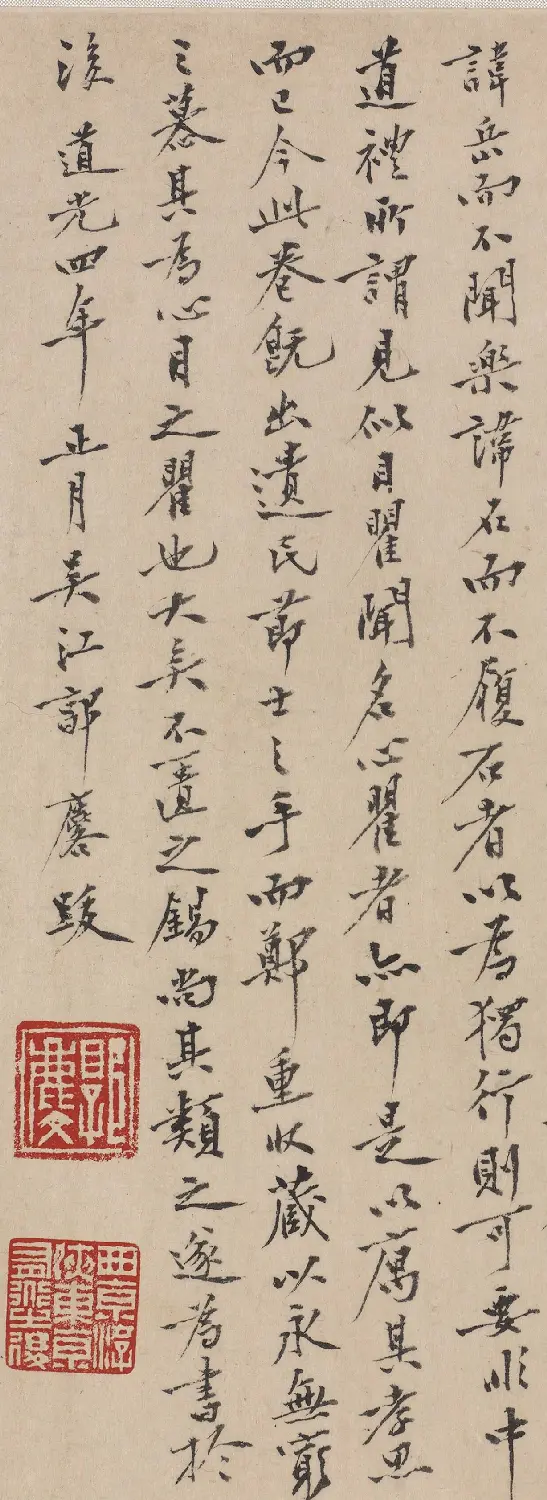 諱岳而不聞樂諱石而不履石者以爲獨行則可要非中
道禮所謂見似目瞿聞名心瞿者亦即是以寓其孝思
而已今此卷既出遺民節士之手而鄭重收藏以永無窮
之慕其爲心目之瞿也大矣不匱之錫尚其類之遂爲書於
後 道光四年正月吳江郭麐跋
郭麐